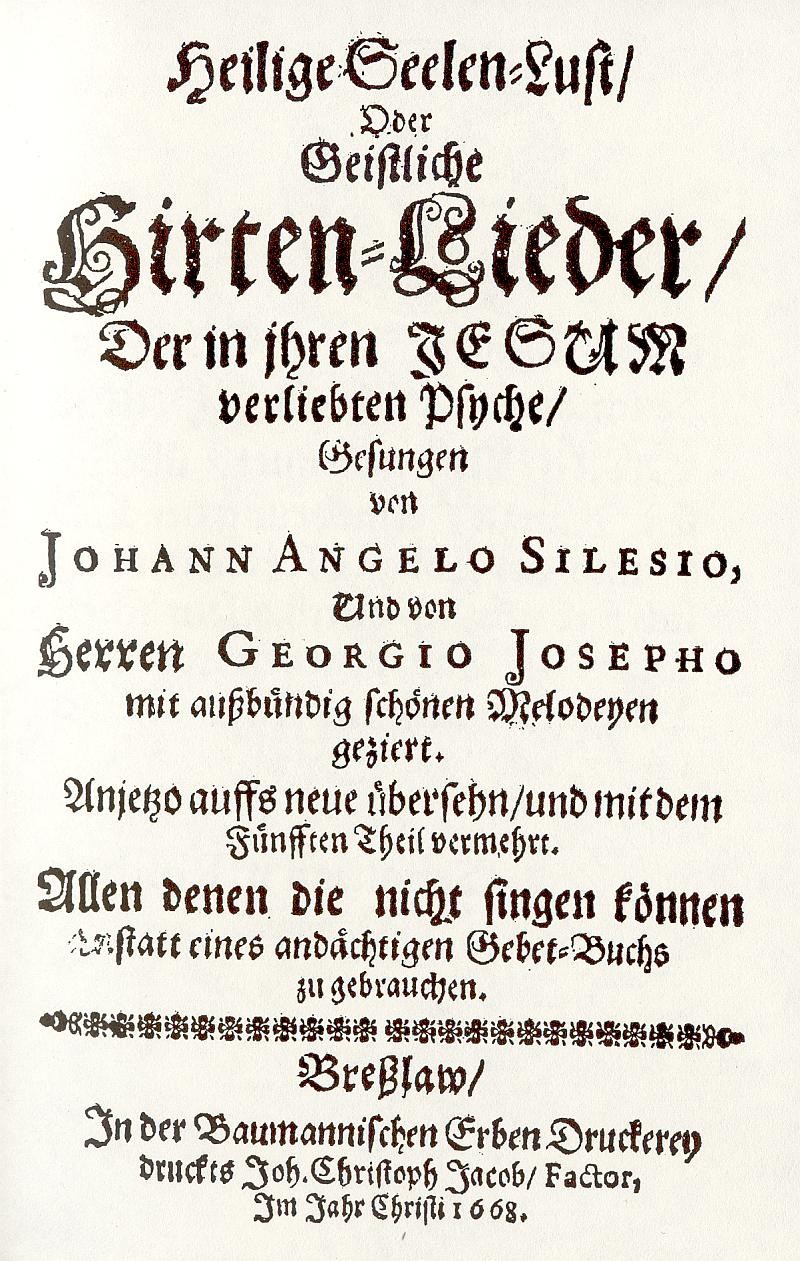 Heilige Seelen-Lust/
Oder
Geistliche
Hirten-Lieder/
Der in jhren JESUM
verliebten Psyche/
Gesungen
von
JOHANN ANGELO SILESIO,
Und von
Herren GEORGIO JOSEPHO
mit außbündig schönen Melodeyen
geziert.
Anjetzo auffs neue übersehn/und mit dem
Fünfften Theil vermehrt.
Allen denen die nicht singen können
Anstatt eines andächtigen Gebet-Buchs
zu gebrauchen.
Breßlaw/
In der Baumannischen Erben Druckerey
druckts Joh. Christoph Jacob/ Factor,
Im Jahr Christi 1668.